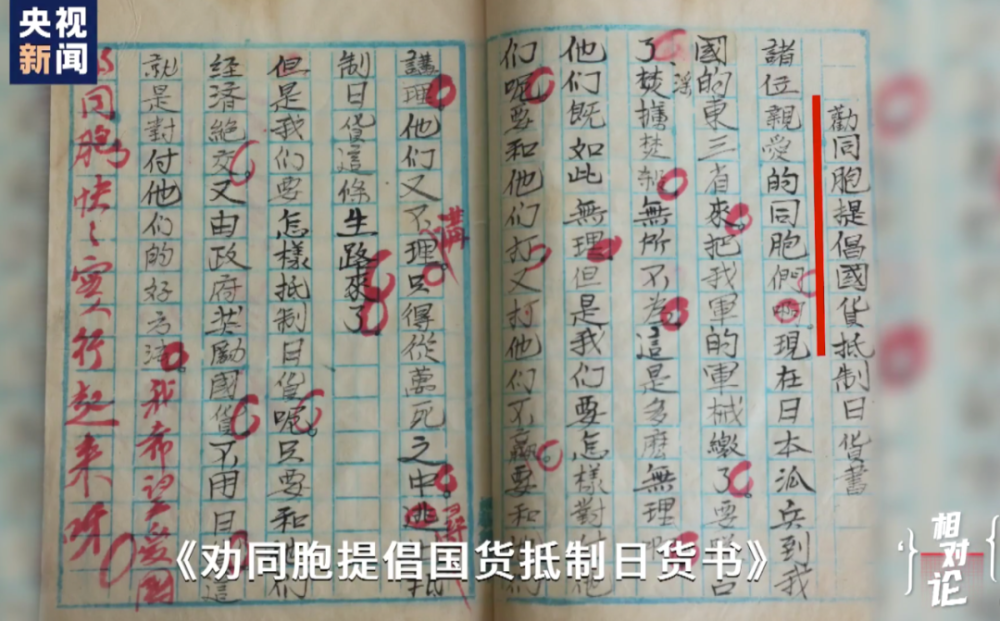 央视
新闻
勸同胞提倡國貨抵制日貨書
諸位親愛的同胞們啊現在日本派兵到我
國的東三省來把我軍的軍械繳了要占
了焚擄焚殺無所不為這是多麼無理
他们既如此無理但是我们要怎樣對他
们呢要和他们打又打他们不贏要和们
講理他们又不理。只得從萬死之中逃抵
講
制日貨這條生路來了
但是我们要怎樣抵制日貨呢。只要和他们
経済絕交又由政府奖勵國貨不用日這
就是對付他們的好方法。我希望愛國
的同胞快々實行起来呀
《劝同胞提倡国货抵制日货书》
相对论